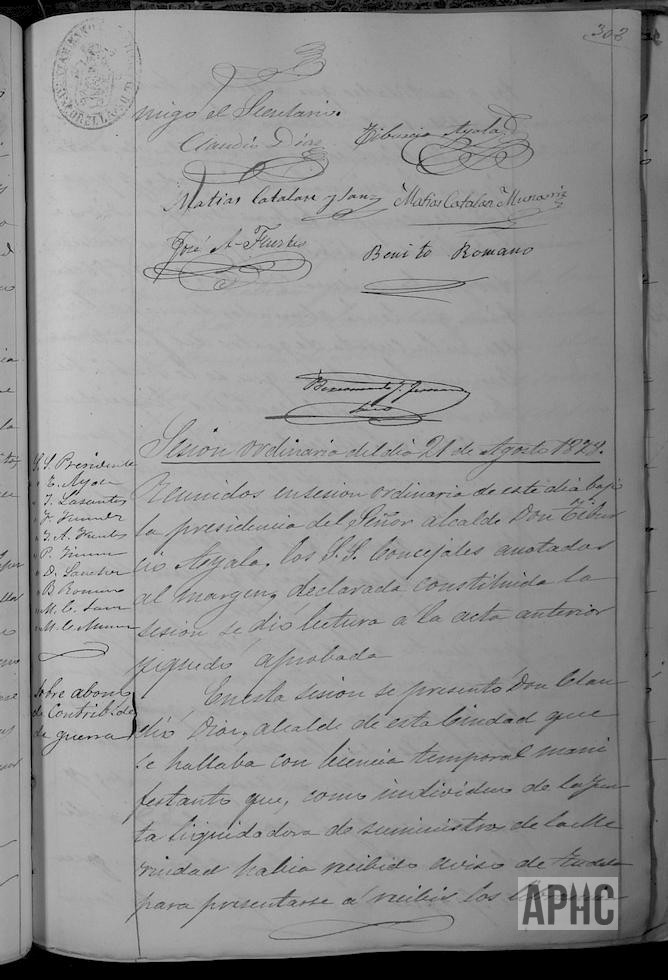 308
migo el Secretario.
Claudio Díaz
Tiburcio Ayala
Matias Catalan y Sanz
Matias Catalan Munarriz
José A. Fuertes
Benito Romano
Sesión ordinaria del día 21 de Agosto 1878.
S. S. Presidente
" T. Ayala
" J. A. Fuertes
" D. Sanchez
" B. Romano
" M. C. Sanz
" M. C. Munar
Reunidos en sesion ordinaria de este día bajo
la presidencia del Señor alcalde Don Tibur
cio Ayala, los S.S. Concejales anotados
al margen, declarada constituida la
sesion se dio lectura a la acta anterior
y quedó aprobada
Sobre abono
de Contribs. de
de guerra
En esta sesion se presentó Don Clau
dio Díaz, alcalde de esta Ciudad que
se hallaba con licencia temporal mani
festanto que, como individuo de la Jun
ta liquidadora de suministros de la Me
rindad habia recibido aviso de Tudela
para presentarse a recibir los
APHC